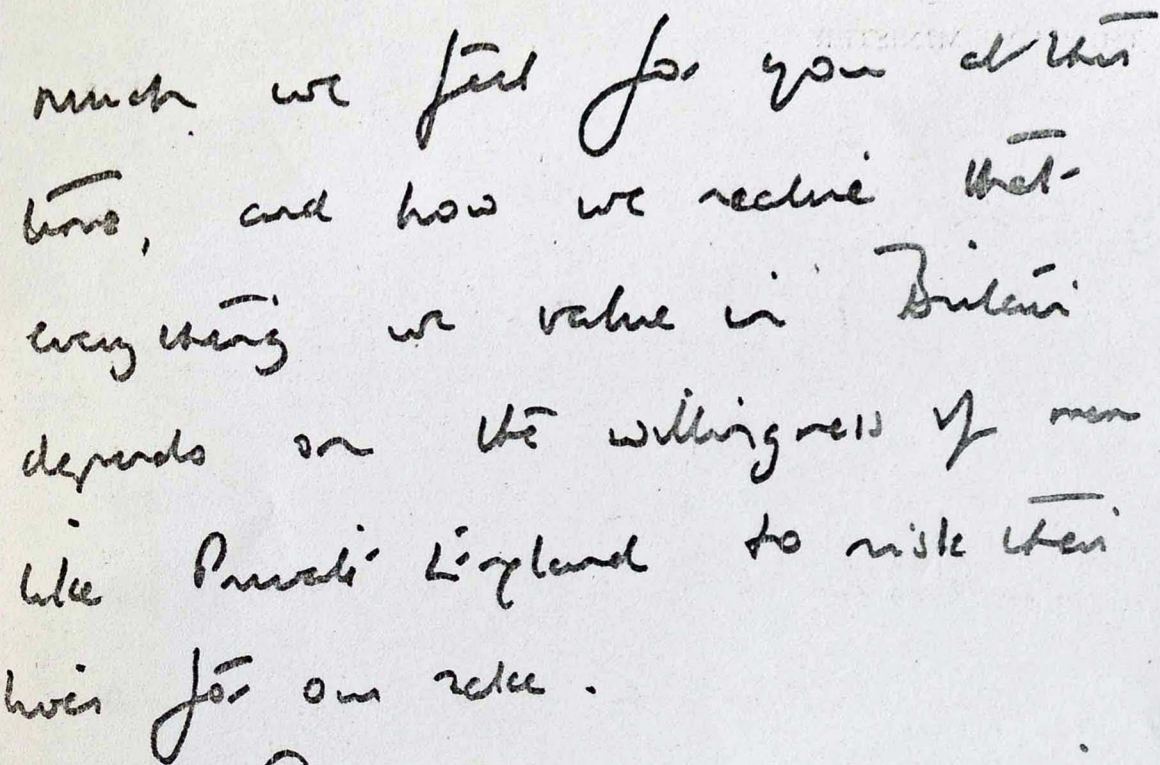 much we feel for you at this
time, and how we realise that
everything we value in Britain
depends on the willingness of men
like Private England to risk their
lives for our sake.